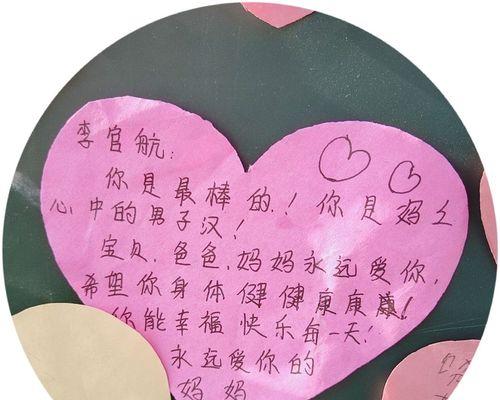 李官航:
你是最棒的!你是妈么
心中的男子汉!
宝贝,爸爸,妈妈永远爱你,
希望你身体健健康康康!
你能幸福快乐每一天!
永远爱你的
妈妈